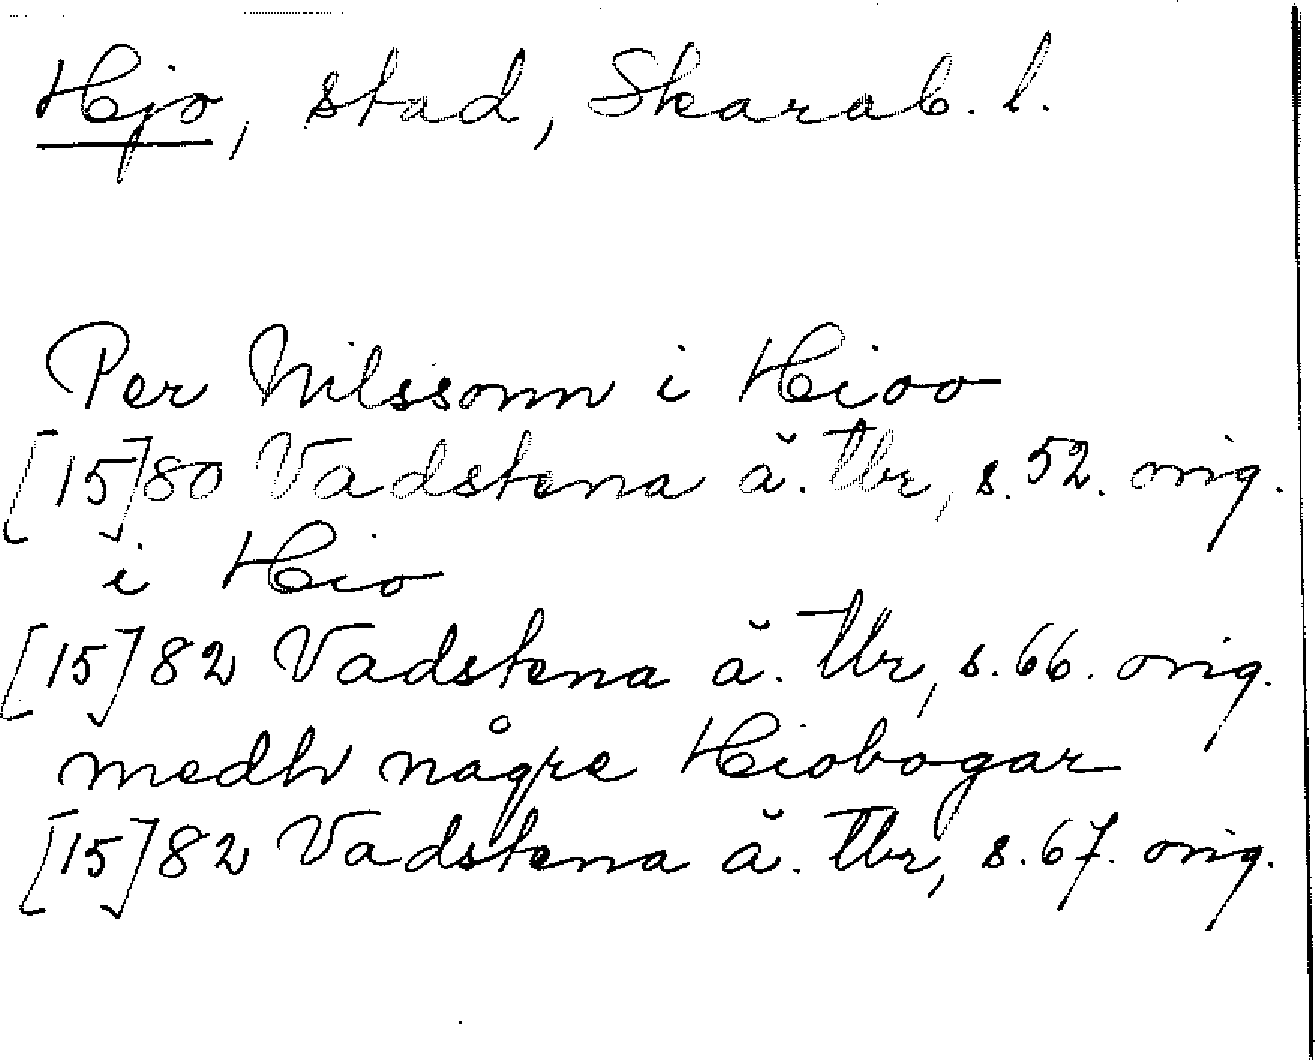 Hjo, stad, Skarab. l.
Per Nilssonn i Hioo
[15]80 Vadstena ä. tbr, s. 52. orig.
i Hio
[15]82 Vadstena ä. tbr, s. 66. orig.
medh någre Hiobogar
[15]82 Vadstena ä. tbr, s. 67. orig.